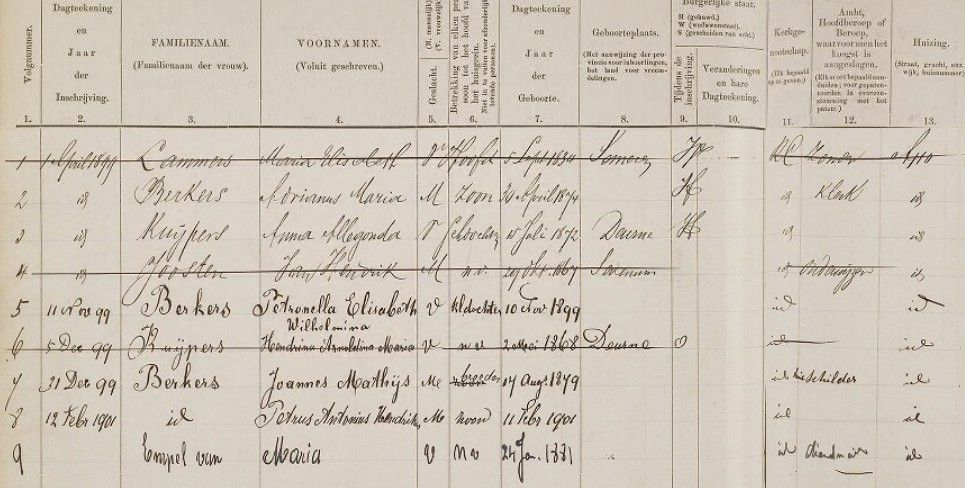 Dagteekening en Jaar der Inschrijving.
FAMILIENAAM.
(Familienaam der vrouw).
VOORNAMEN.
(Voluit geschreven.)
Volgnummer.
Geslacht.
(M. mannelijk)
(V. vrouwelijk)
Betrekking van elken persoon tot het hoofd van het huisgezin.
Dagteekening en Jaar der Geboorte.
Geboorteplaats.
Burgerlijke staat.
H (gehuwd.)
W (weduwenstaat).
S (gescheiden van echt.)
Tijdens de inschrijving.
Veranderingen en hare Dagteekening.
Kerkgenootschap.
Ambt, Hoofdberoep of Beroep, waarvoor men het hoogst is aangeslagen.
Huizing.
1. 2. 3. 4. 5. 6. 7. 8. 9. 10. 11. 12. 13.
1 1 April 1899 Lammers Maria Elisabeth V Hoofd 5 Sept 1834 Someren RC Zonder
2 id Berkers Adrianus Maria M Zoon 30 April 1874 H id Klerk id
3 id Kuijpers Anna Allegonda V 15 Juli 1872 Deurne H id id
4 id Joosten Jan Hendrik M n.v. 29 Oct. 1867 Sevenum id id
5 11 Nov 99 Berkers Petronella Elisabeth V kldochter 10 Nov 1899 id id
Wilhelmina
6 5 Dec 99 Kuijpers Hendrina Arnoldina Maria V n v 2 Mei 1868 Deurne O id id
7 31 Dec 99 Berkers Joannes Mathijs M 17 Aug 1879 id schilder id
8 12 Febr 1901 id Petrus Antonius Hendrik M zoon 11 Febr 1901 id id
9 Empel van Maria V n v 24 Jan. 1881 id id